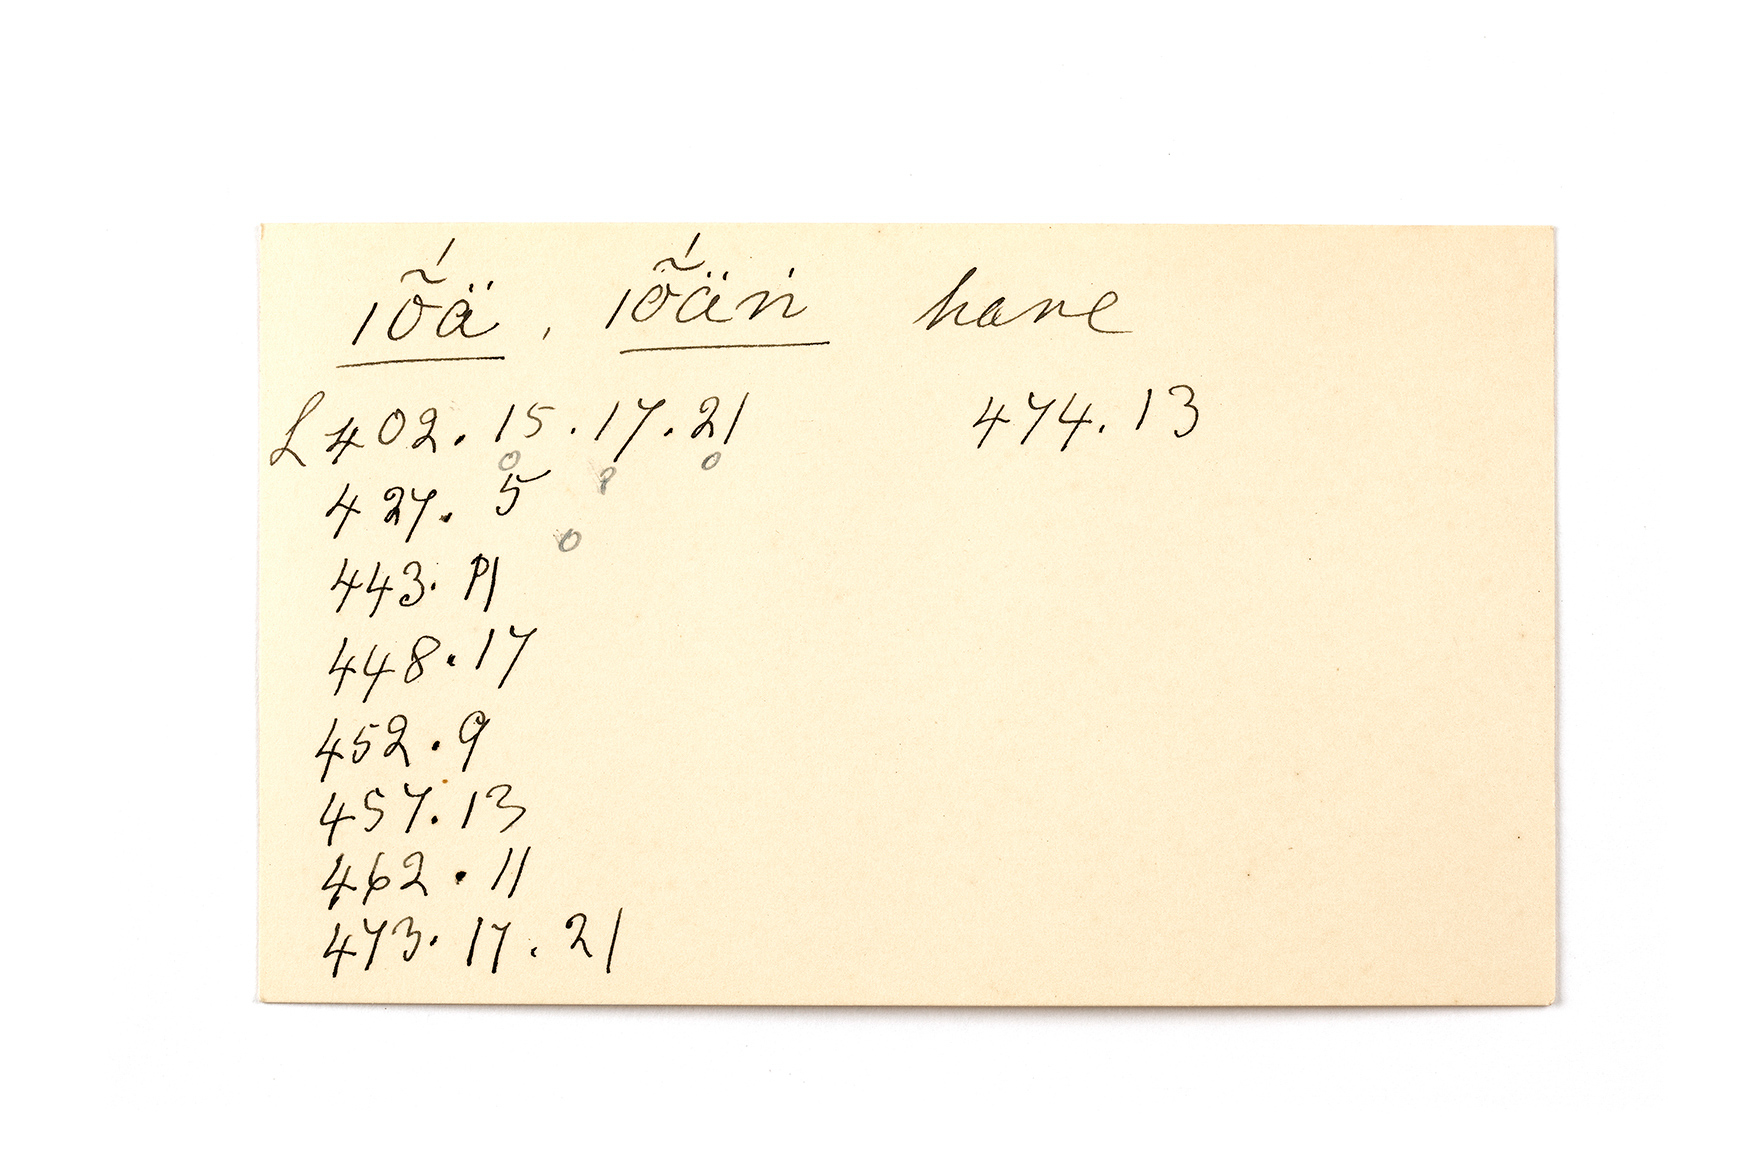 ıṍä, ıṍäṅ have
L 402. 15. 17. 21 474. 13
427. 5
443. 11
448. 17
452. 9
457. 13
462. 11
473. 17. 21